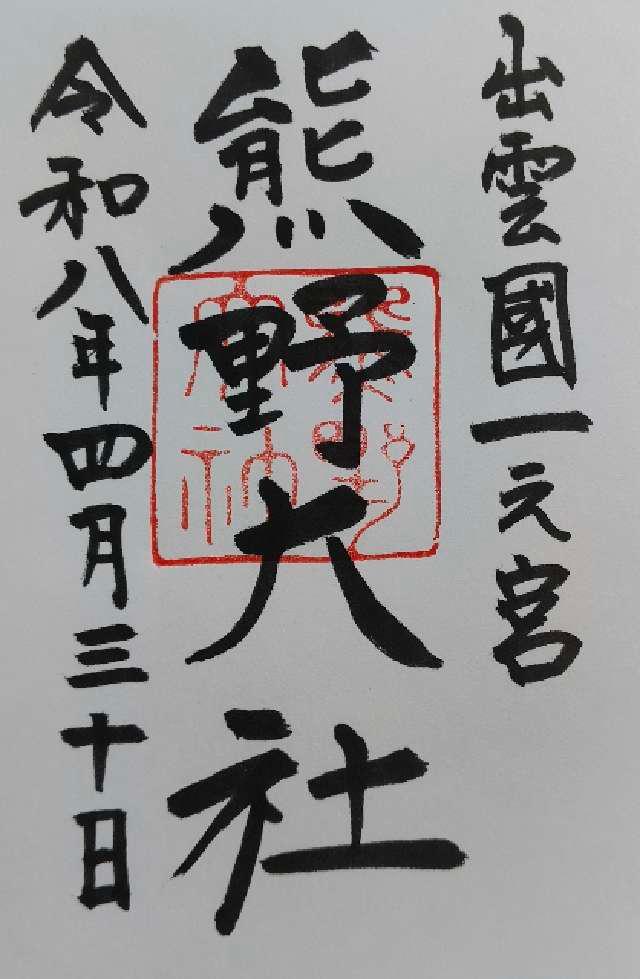 出雲國一之宮
熊野大社
令和八年四月三十日